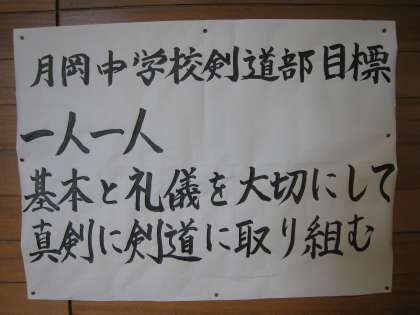 月岡中学校剣道部目標
一人一人
基本と礼儀を大切にして
真剣に剣道に取り組む